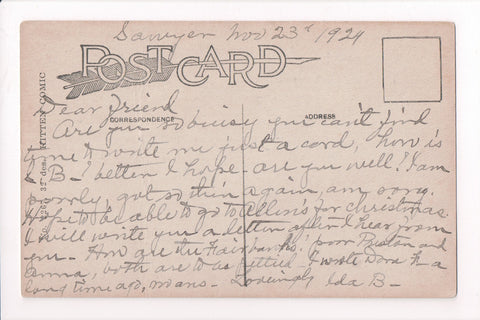 Sawyer Nov 23rd 1924
POST CARD
Dear Friend
CORRESPONDENCE
ADDRESS
Are you so busy you can't find
time to write me just a card, how is
B- better I hope. are you well? I am
poorly, got so thin again, am sorry.
Hope to be able to go to Allen's for Christmas.
I will write you a letter after I hear from
you. How are the Fairbanks', poor Preston and
Anna, both are to be pitied. I wrote Dora H a
long time ago, no ans. - Lovingly Ida B-
32 des. MITTEN COMIC